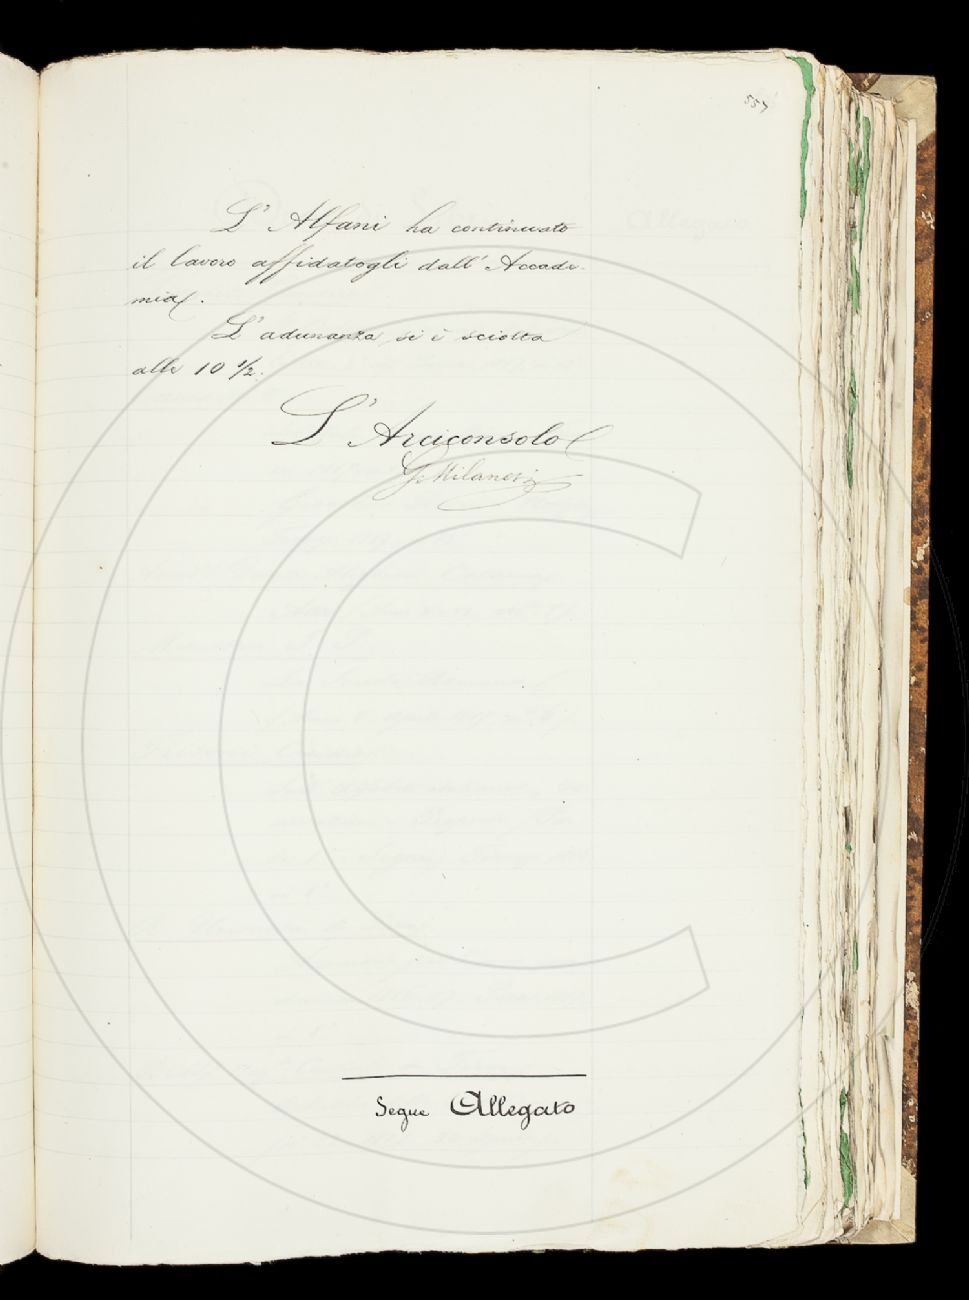 557
L' Alfani ha continuato
il lavoro affidatogli dall' Accade-
mia.
L' adunanza si è sciolta
alle 10 1/2.
L' Arciconsolo
G. Milanesi
Segue Allegato